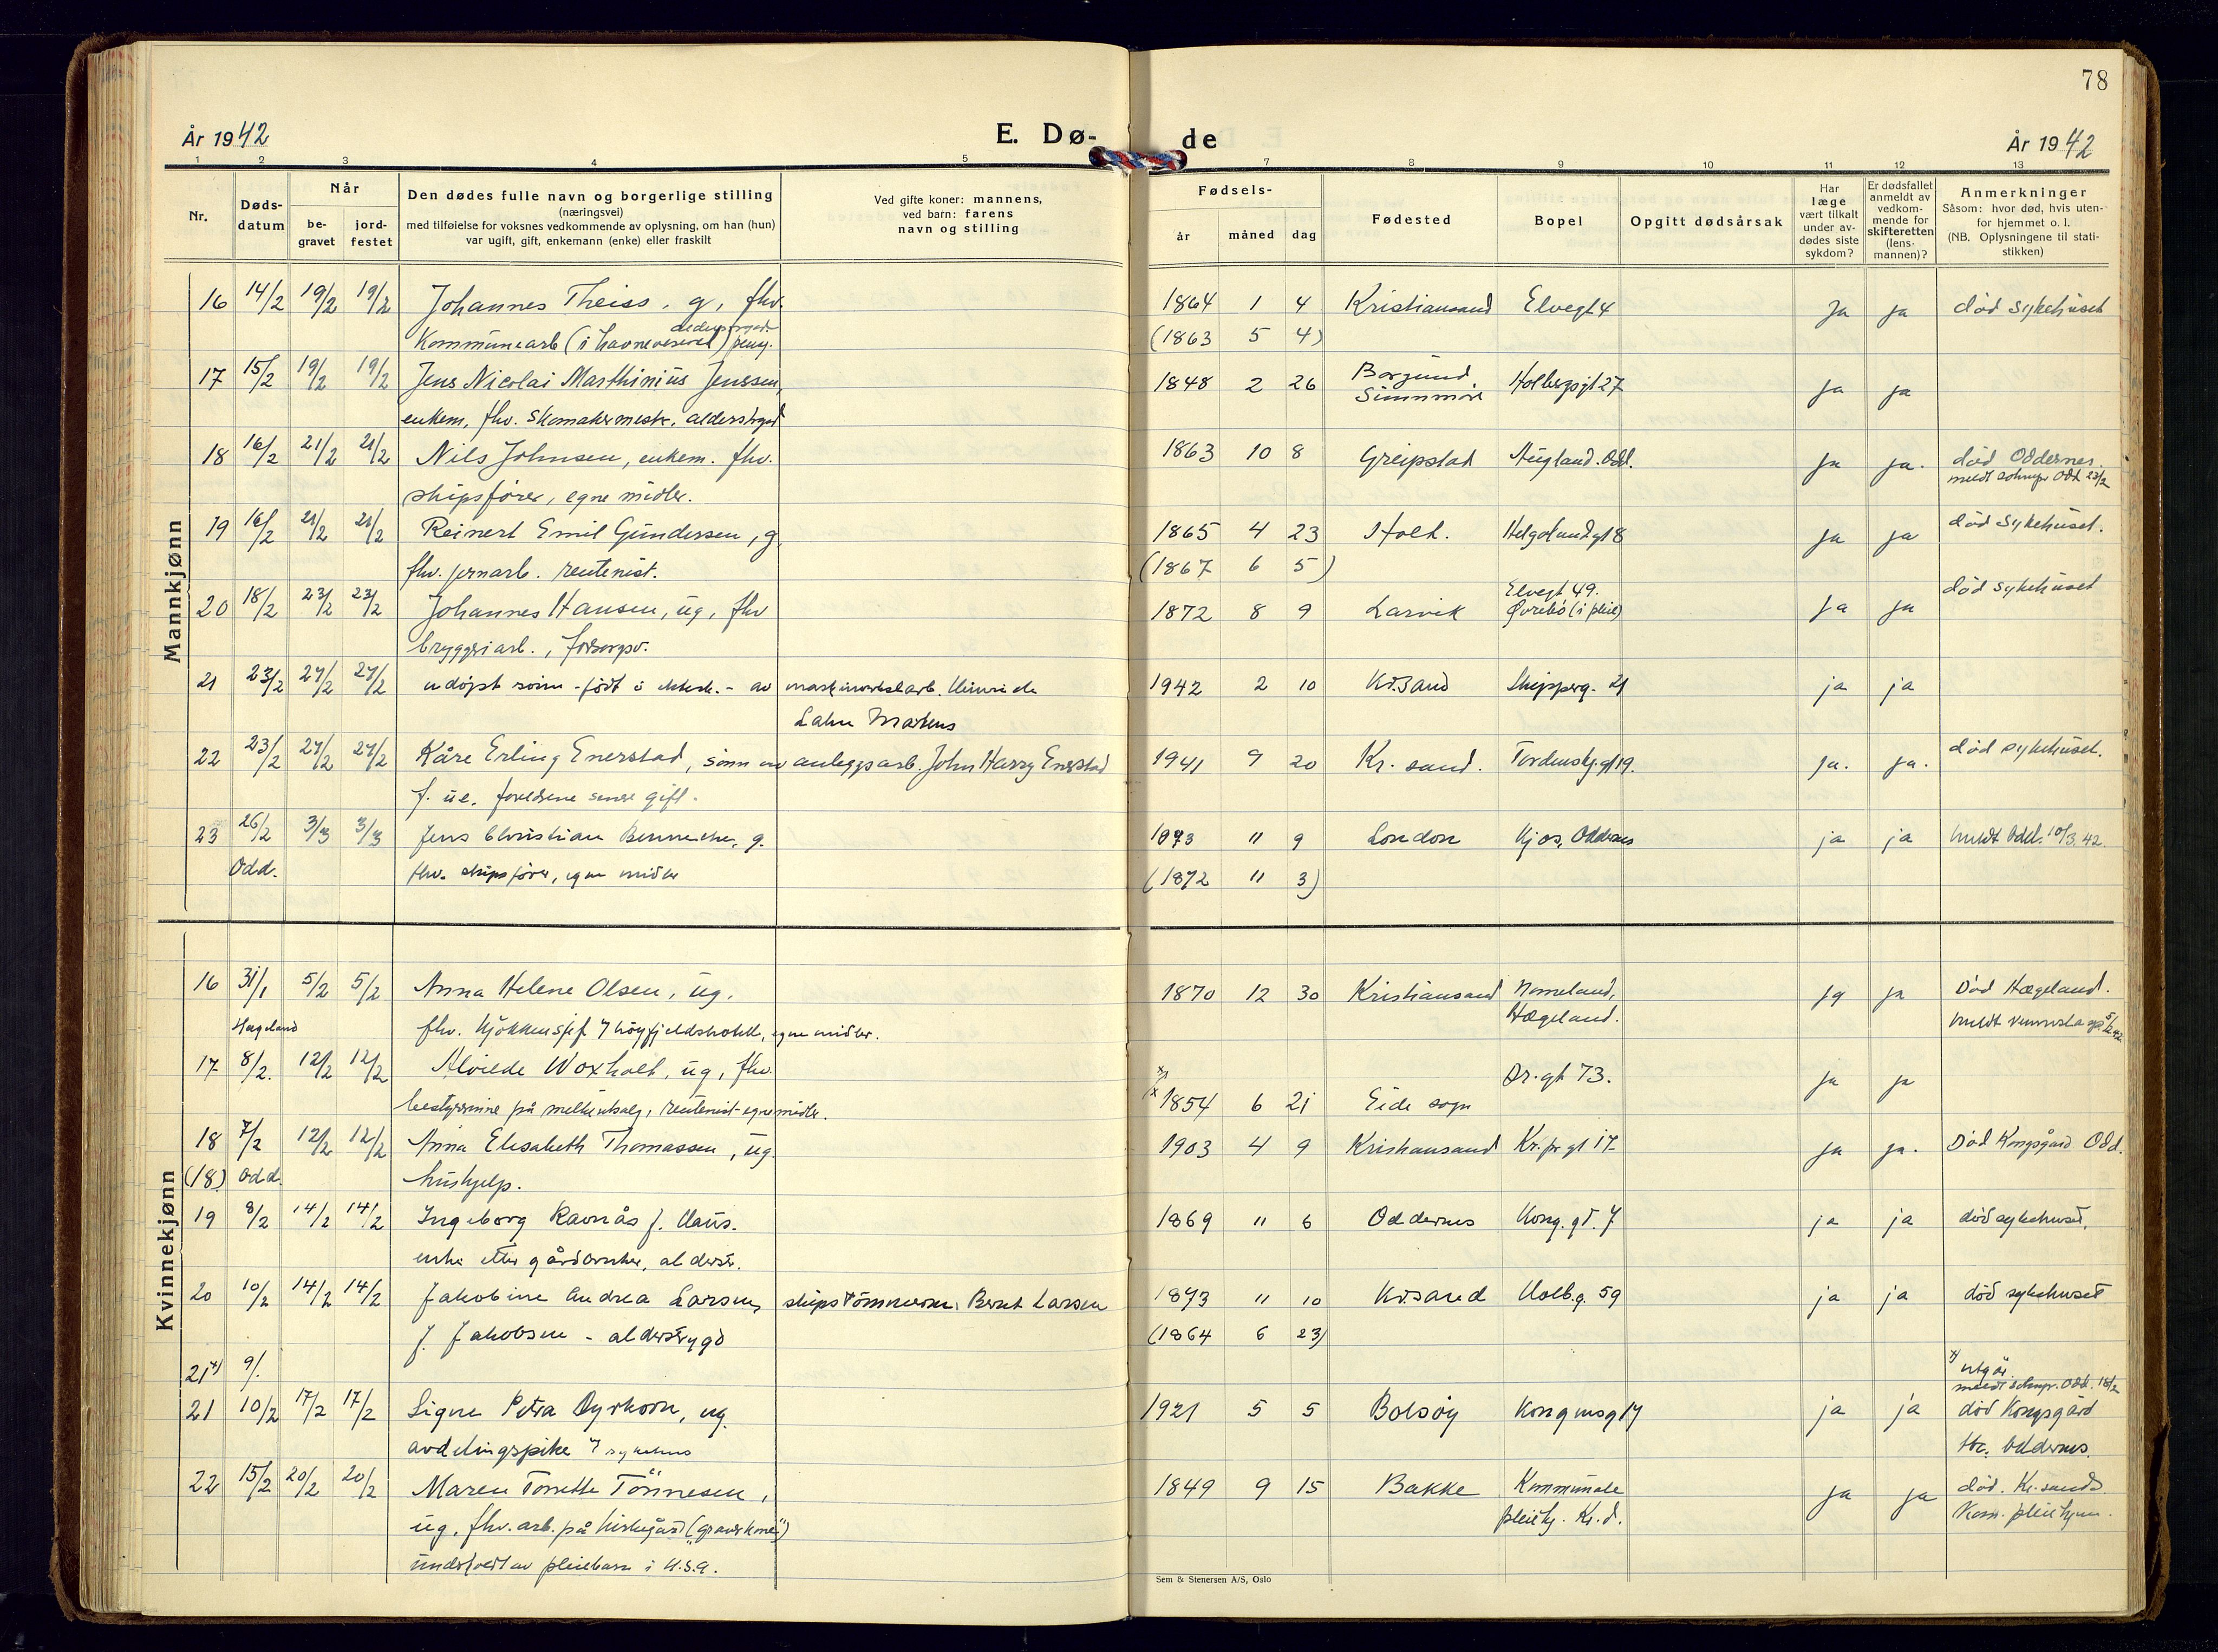 78
År 1942
E. Dø-
de
År 1942
1 2 3 4 5 7 8 9 10 11 12 13
Nr.
Døds-
datum
Når
be-
gravet
jord-
festet
Den dødes fulle navn og borgerlige stilling
(næringsvei)
med tilføielse for voksnes vedkommende av oplysning, om han (hun)
var ugift, gift, enkemann (enke) eller fraskilt
Ved gifte koner: mannens,
ved barn: farens
navn og stilling
Fødsels-
år måned dag
Fødested
Bopel
Opgitt dødsårsak
Har
læge
vært tilkalt
under av-
dødes siste
sykdom?
Er dødsfallet
anmeldt av
vedkom-
mende for
skifteretten
(lens-
mannen)?
Anmerkninger
Såsom: hvor død, hvis uten-
for hjemmet o. l.
(NB. Oplysningene til stati-
stikken)
Mannkjønn
16 14/2 19/2 19/2 Johannes Theiss, g, fhv. 1864 1 4 Kristiansand Elvegt 4 Ja ja død sykehuset
Kommunearb (i havnevesenet) (1863 5 4)
17 15/2 19/2 19/2 Jens Nicolai Marthinius Jenssen, 1848 2 26 Borgund, Holbergsgt 27 ja ja
enkem, fhv. skomakermestr, alderstrygd Sunnmøre
18 16/2 21/2 21/2 Nils Johnsen, enkem. fhv. 1863 10 8 Greipstad Augland. Odd. ja ja. død Oddernes.
skipsfører, egne midler. meldt Odd 23/2
19 16/2 21/2 21/2 Reinert Emil Gundersen, g, 1865 4 23 Holt. Helgolandgt 8 ja ja død sykehuset.
fhv. jernarb. rentenist. (1867 6 5)
20 18/2 23/2 23/2 Johannes Hansen, ug, fhv 1872 8 9 Larvik Elvegt 49. Ja ja død sykehuset
bryggeriarb., forsorgsv. Øvrebø (i pleie)
21 23/2 27/2 27/2 udøpt sønn - født i ektesk. - av maskinverkstarb. Hinrich 1942 2 10 Kr.sand Skipperg. 21 ja ja
Lahn Martens
22 23/2 27/2 27/2 Kåre Erling Enerstad, sønn av anleggsarb. John Harry Enerstad 1941 9 20 Kr. sand. Tordenskj.gt 19. Ja. ja. død sykehuset.
f. u.e. foreldrene senere gift.
23 26/2 3/3 3/3 Jens Christian Benneche, g. 1873 11 9 London Kjos, Oddernes ja ja meldt Odd. 10/3 42.
Odd. fhv. skipsfører, egne midler (1872 11 3)
Kvinnekjønn
16 31/1 5/2 5/2 Anna Helene Olsen, ug. 1870 12 30 Kristiansand Homeland, ja ja Død Hægeland.
Hægeland fhv. kjøkkensjef v/ høyfjeldshotell, egne midler. Hægeland. meldt Vennesla
17 8/2. 12/2 12/2 Alvilde Woxholt, ug, fhv. 1854 6 21 Eide sogn Dr.gt 73. ja ja
bestyrerinne på melkeutsalg, rentenist - egne midler.
18 7/2 12/2 12/2 Anna Elisabeth Thomassen, ug. 1903 4 9 Kristiansand Kr.pr gt 17 ja ja. Død Kongsgård Odd.
(18) Odd. hushjelp.
19 8/2 14/2 14/2 Ingeborg Ravnås f. Haus. 1869 11 6 Oddernes Kong. gt. 7 ja ja død sykehuset.
enke etter gårdbruker, alderstr.
20 10/2 14/2 14/2 Jakobine Andrea Larsen, skipstømmerm. Bernt Larsen 1873 11 10 Kr.sand Holb.g. 59 ja ja død sykehuset
f. Jakobsen - alderstrygd (1864 6 23)
21 x) 9/. x) utgår.
meldt Odd. 18/2
21 10/2 17/2 17/2 Signe Petra Dyrkorn, ug. 1921 5 5 Bolsøy Kongensg 17 ja ja død Kongsgård
avdelingspike v/ sykehus Oddernes.
22 15/2 20/2 20/2 Maren Tonette Tønnesen, 1849 9 15 Bakke Kommunale ja ja død. Kr.sands
ug, fhv. arb. på kirkegård ("graverkone") pleiehj. Kr.s. Kom. pleiehjem.
understøttet av pleiebarn i U.S.A.
Sem & Stenersen A/S, Oslo